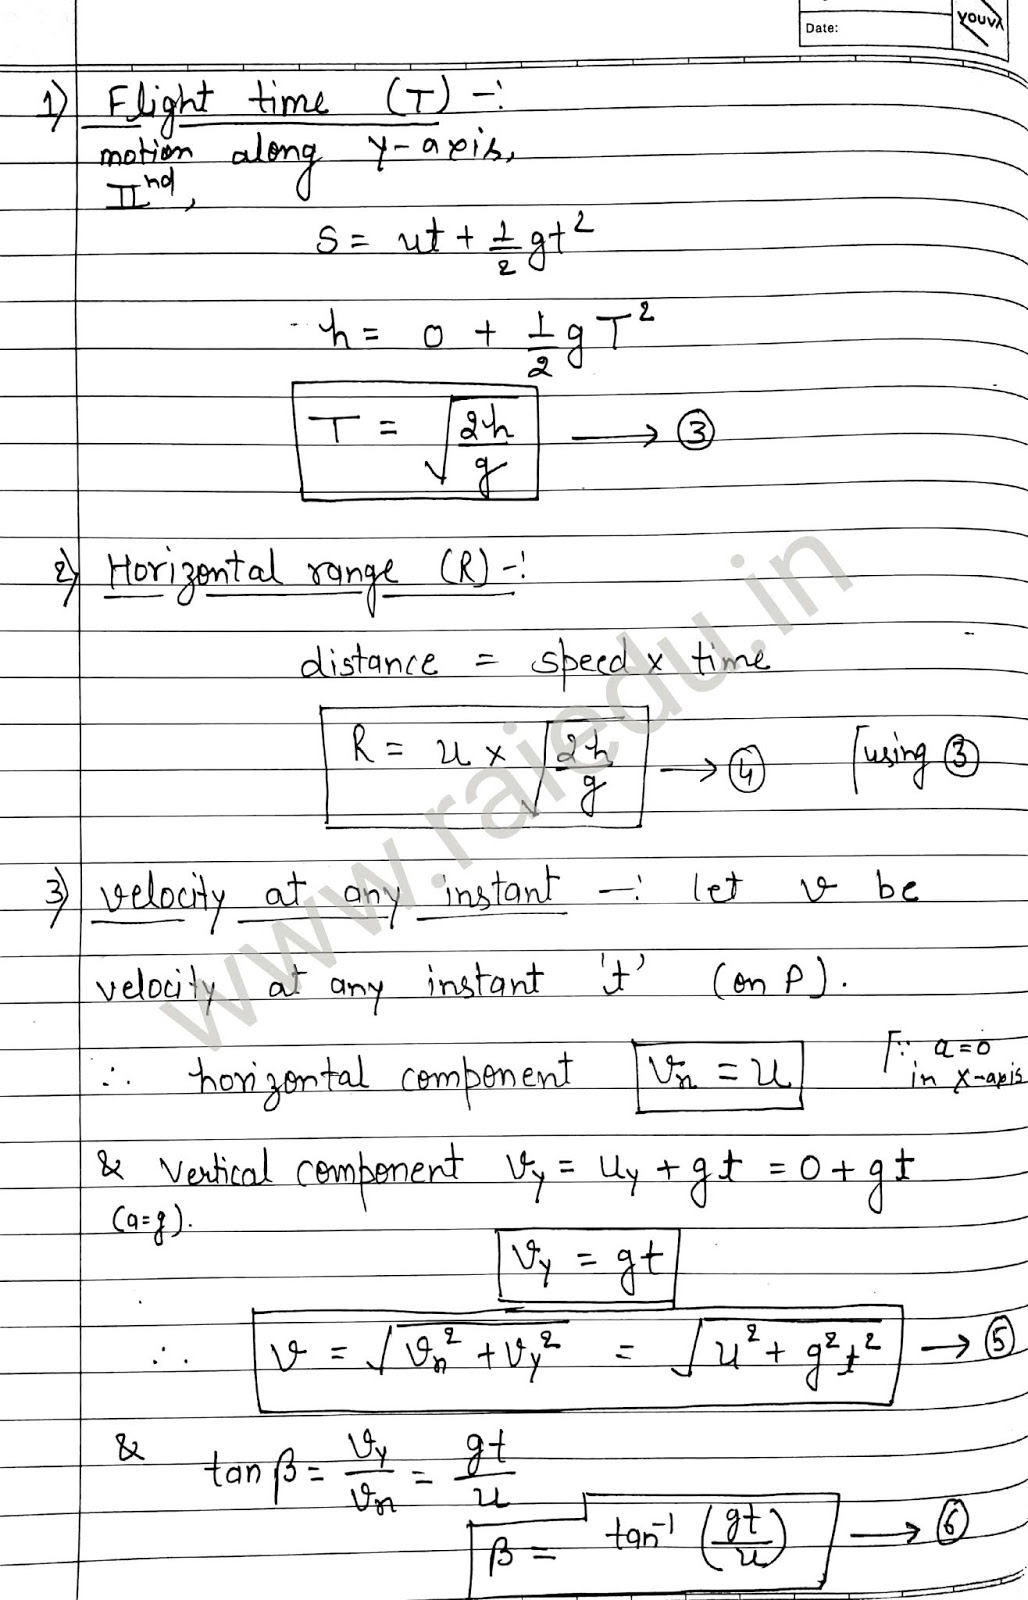 Date:
YOUVA
1) Flight time (T) -:
motion along y-axis,
IInd,
S = ut + 1/2 gt²
h = 0 + 1/2 g T²
T = √(2h/g) → ③
2) Horizontal range (R) -:
distance = speed x time
R = u × √(2h/g) → ④ [using ③
3) velocity at any instant -: let v be
velocity at any instant 't' (on P).
∴ horizontal component vx = u [∵ a=0
in x-axis
& vertical component vy = uy + gt = 0 + gt
(a=g).
vy = gt
∴ v = √(vx² + vy²) = √(u² + g²t²) → ⑤
& tan β = vy/vx = gt/u
β = tan⁻¹ (gt/u) → ⑥
www.raiedu.in